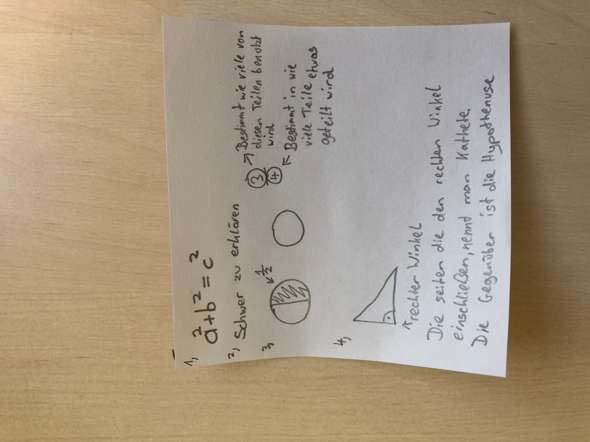 1, a² + b² = c²
2, Schwer zu erklären
3, ½
3 Bestimmt wie viele von
diesen Teilen benutzt
wird
4 Bestimmt in wie
viele Teile etwas
geteilt wird
4,
rechter Winkel
Die seiten die den rechten Winkel
einschließen, nennt man Kathete.
Die Gegenüber ist die Hypothenuse